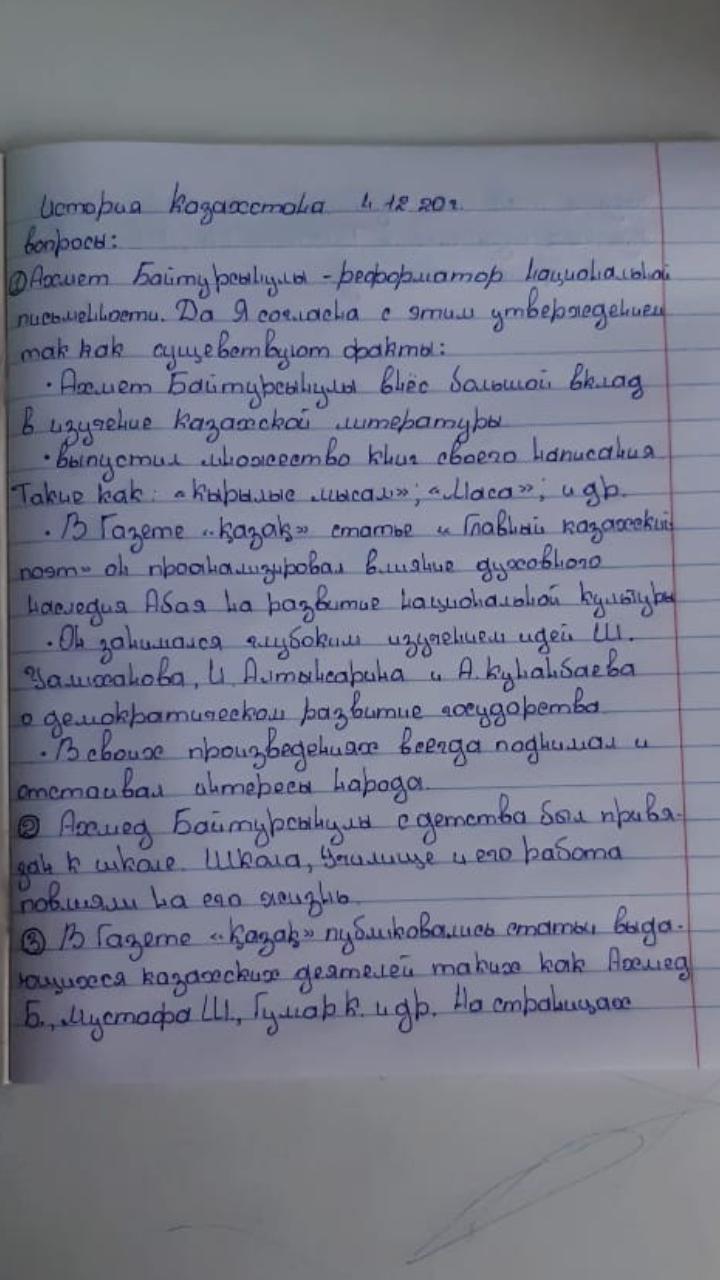 История Казахстана 4. 12 20г.
вопросы:
① Ахмет Байтурсынулы - реформатор национальной
письменности. Да Я согласна с этим утверждением
так как существуют факты:
· Ахмет Байтурсынулы внёс большой вклад
в изучение казахской литературы
· выпустил множество книг своего написания
Такие как: «Кырылые мысал»; «Маса»; и др.
· В Газете «Қазақ» статье «Главный казахский
поэт» он проанализировал влияние духовного
наследия Абая на развитие национальной культуры
· Он занимался глубоким изучением идей Ш.
Уалиханова, И. Алтынсарина и А. Кунанбаева
о демократическом развитие государства
· В своих произведениях всегда поднимал и
отстаивал интересы народа.
② Ахмед Байтурсынулы с детства был привя-
зан к школе. Школа, Училище и его работа
повлияли на его жизнь.
③ В Газете «Қазақ» публиковались статьи выда-
ющихся казахских деятелей таких как Ахмед
Б., Мустафа Ш., Гумар К. и др. На страницах